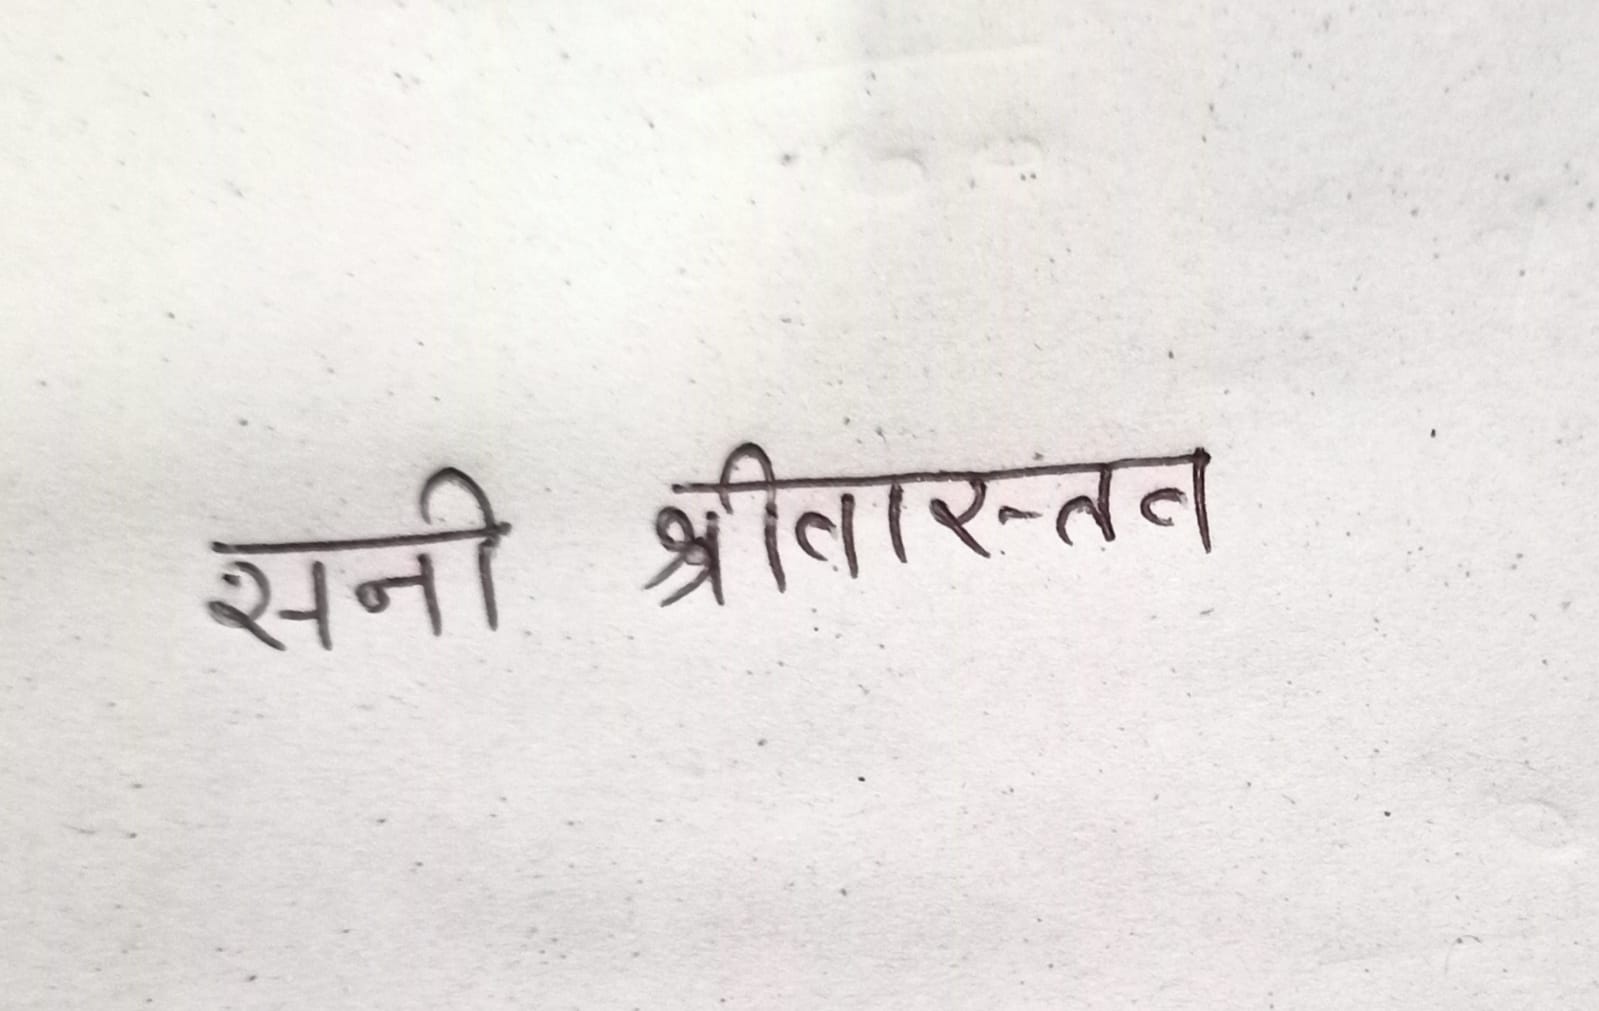 सनी श्रीवास्तव